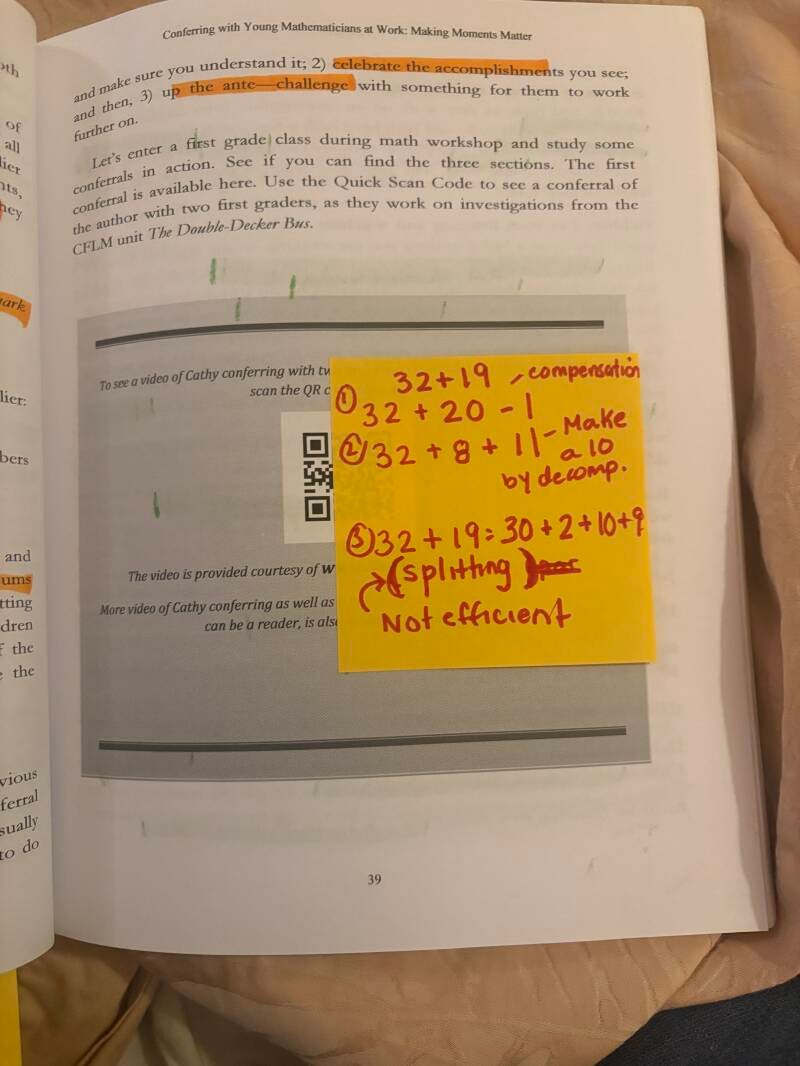 Conferring with Young Mathematicians at Work: Making Moments Matter
and make sure you understand it; 2) celebrate the accomplishments you see;
and then, 3) up the ante—challenge with something for them to work
further on.
Let's enter a first grade class during math workshop and study some
conferrals in action. See if you can find the three sections. The first
conferral is available here. Use the Quick Scan Code to see a conferral of
the author with two first graders, as they work on investigations from the
CFLM unit The Double-Decker Bus.
To see a video of Cathy conferring with tw
scan the QR c
The video is provided courtesy of W
More video of Cathy conferring as well as
can be a reader, is als
32+19 - compensation
① 32 + 20 - 1
② 32 + 8 + 11 - Make
a 10
by decomp.
③ 32 + 19 = 30 + 2 + 10 + 9
→ (splitting)
Not efficient
39
of
all
lier
nts,
hey
ark
lier:
bers
and
ums
tting
dren
f the
e the
vious
ferral
sually
to do